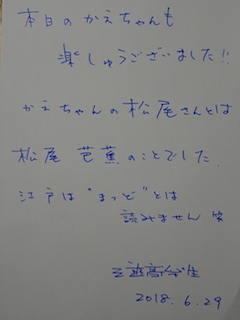 本日のかえちゃんも
楽しゅうございました!!
かえちゃんの松尾さんとは
松尾 芭蕉のことでした
江戸は"まっど"とは
読みません 笑
2018.6.29